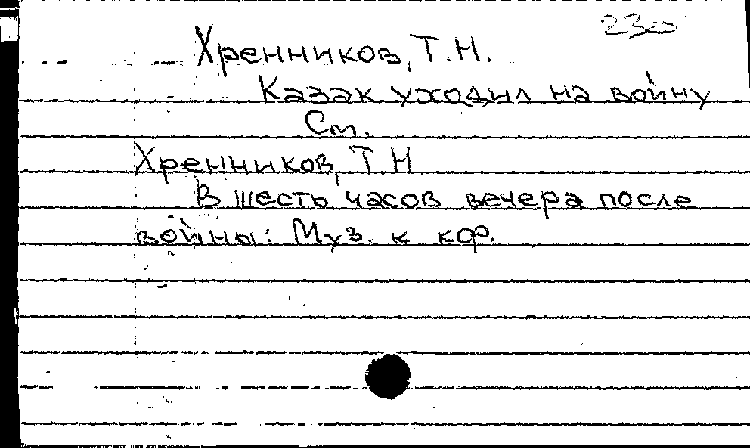 Хренников, Т.Н.
Казак уходил на войну
См.
Хренников, Т.Н
В шесть часов вечера после
войны: Муз. к кф.